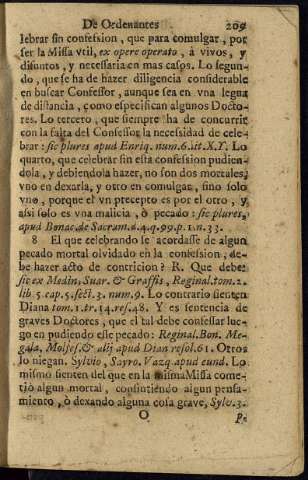 De Ordenantes 209
lebrar sin confession, que para comulgar, por
ser la Missa vtil, ex opere operato, á vivos, y
difuntos, y necessaria en mas casos. Lo segun-
do, que se ha de hazer diligencia considerable
en buscar Confessor, aunque sea en vna legua
de distancia, como especifican algunos Docto-
res. Lo tercero, que siempre ha de concurrir
con la falta del Confessor la necesidad de cele-
brar: sic plures apud Enriq. num. 6. lit. X. Y. Lo
quarto, que celebrar sin esta confession pudien-
dola, y debiendola hazer, no son dos mortales,
vno en dexarla, y otro en comulgar, sino solo
vno, porque el vn precepto es por el otro, y
assi solo es vna malicia, ò pecado: sic plures,
apud Bonac. de Sacram. d. 4. q. 99. p. 1. n. 33.
8 El que celebrando se acordasse de algun
pecado mortal olvidado en la confession, de-
be hazer acto de contricion? R. Que debe:
sic ex Medin. Suar. & Graffis, Reginal. tom. 2.
lib. 5. cap. 5. sect. 3. num. 9. Lo contrario sienten
Diana tom. 1. tr. 14. res. 48. Y es sentencia de
graves Doctores, que el tal debe confessar lue-
go en pudiendo esse pecado: Reginal. Bon. Me-
gala, Molfes. & alij apud Dian resol. 61. Otros
lo niegan. Sylvio, Sayro. Vazq. apud eund. Lo
mismo sienten del que en la misma Missa come-
tiò algun mortal, consintiendo algun pensa-
miento, ò dexando alguna cosa grave, Sylv. 3.
O p.